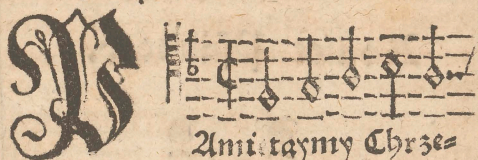 PAmiętaymy Chrze=